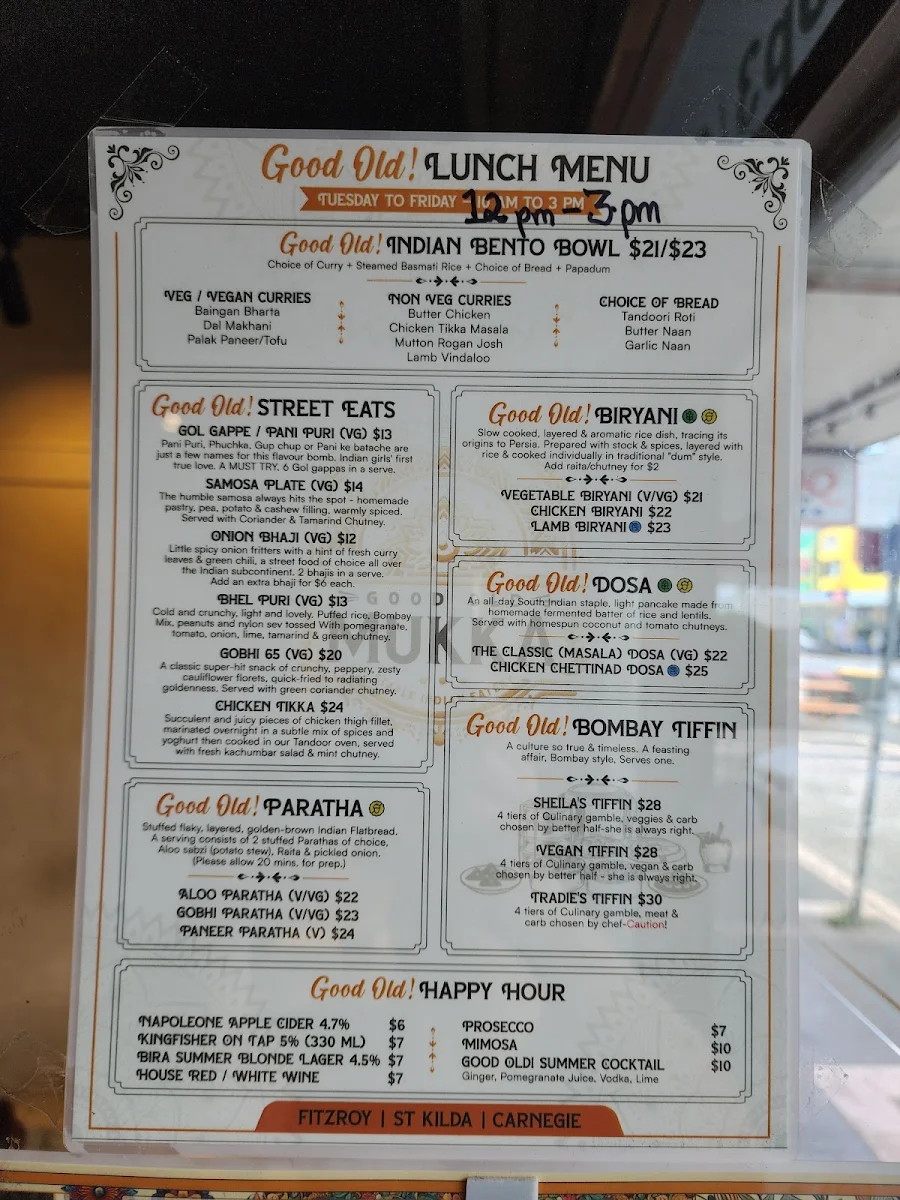 Good Old! LUNCH MENU
TUESDAY TO FRIDAY AM TO 3 PM
12 pm - 3 pm
Good Old! INDIAN BENTO BOWL $21/$23
Choice of Curry + Steamed Basmati Rice + Choice of Bread + Papadum
VEG / VEGAN CURRIES
Baingan Bharta
Dal Makhani
Palak Paneer/Tofu
NON VEG CURRIES
Butter Chicken
Chicken Tikka Masala
Mutton Rogan Josh
Lamb Vindaloo
CHOICE OF BREAD
Tandoori Roti
Butter Naan
Garlic Naan
Good Old! STREET EATS
GOL GAPPE / PANI PURI (VG) $13
Pani Puri, Phuchka, Gup chup or Pani ke batache are
just a few names for this flavour bomb. Indian girls' first
true love. A MUST TRY. 6 Gol gappas in a serve.
SAMOSA PLATE (VG) $14
The humble samosa always hits the spot - homemade
pastry, pea, potato & cashew filling, warmly spiced.
Served with Coriander & Tamarind Chutney.
ONION BHAJI (VG) $12
Little spicy onion fritters with a hint of fresh curry
leaves & green chili, a street food of choice all over
the Indian subcontinent. 2 bhajis in a serve.
Add an extra bhaji for $6 each.
BHEL PURI (VG) $13
Cold and crunchy, light and lovely, Puffed rice, Bombay
Mix, peanuts and nylon sev tossed With pomegranate,
tomato, onion, lime, tamarind & green chutney.
GOBHI 65 (VG) $20
A classic super-hit snack of crunchy, peppery, zesty
cauliflower florets, quick-fried to radiating
goldenness. Served with green coriander chutney.
CHICKEN TIKKA $24
Succulent and juicy pieces of chicken thigh fillet,
marinated overnight in a subtle mix of spices and
yoghurt then cooked in our Tandoor oven, served
with fresh kachumbar salad & mint chutney.
Good Old! PARATHA
Stuffed flaky, layered, golden-brown Indian Flatbread.
A serving consists of 2 stuffed Parathas of choice,
Aloo sabzi (potato stew), Raita & pickled onion.
(Please allow 20 mins. for prep.)
ALOO PARATHA (V/VG) $22
GOBHI PARATHA (V/VG) $23
PANEER PARATHA (V) $24
Good Old! BIRYANI
Slow cooked, layered & aromatic rice dish, tracing its
origins to Persia. Prepared with stock & spices, layered with
rice & cooked individually in traditional "dum" style.
Add raita/chutney for $2
VEGETABLE BIRYANI (V/VG) $21
CHICKEN BIRYANI $22
LAMB BIRYANI $23
Good Old! DOSA
An all-day South Indian staple, light pancake made from
homemade fermented batter of rice and lentils.
Served with homespun coconut and tomato chutneys.
THE CLASSIC (MASALA) DOSA (VG) $22
CHICKEN CHETTINAD DOSA $25
GOOD
MUKKA
Good Old! BOMBAY TIFFIN
A culture so true & timeless. A feasting
affair, Bombay style, Serves one.
SHEILA'S TIFFIN $28
4 tiers of Culinary gamble, veggies & carb
chosen by better half-she is always right.
VEGAN TIFFIN $28
4 tiers of Culinary gamble, vegan & carb
chosen by better half - she is always right.
TRADIE'S TIFFIN $30
4 tiers of Culinary gamble, meat &
carb chosen by chef-Caution!
Good Old! HAPPY HOUR
NAPOLEONE APPLE CIDER 4.7% $6
KINGFISHER ON TAP 5% (330 ML) $7
BIRA SUMMER BLONDE LAGER 4.5% $7
HOUSE RED / WHITE WINE $7
PROSECCO $7
MIMOSA $10
GOOD OLD! SUMMER COCKTAIL $10
Ginger, Pomegranate Juice, Vodka, Lime
FITZROY | ST KILDA | CARNEGIE